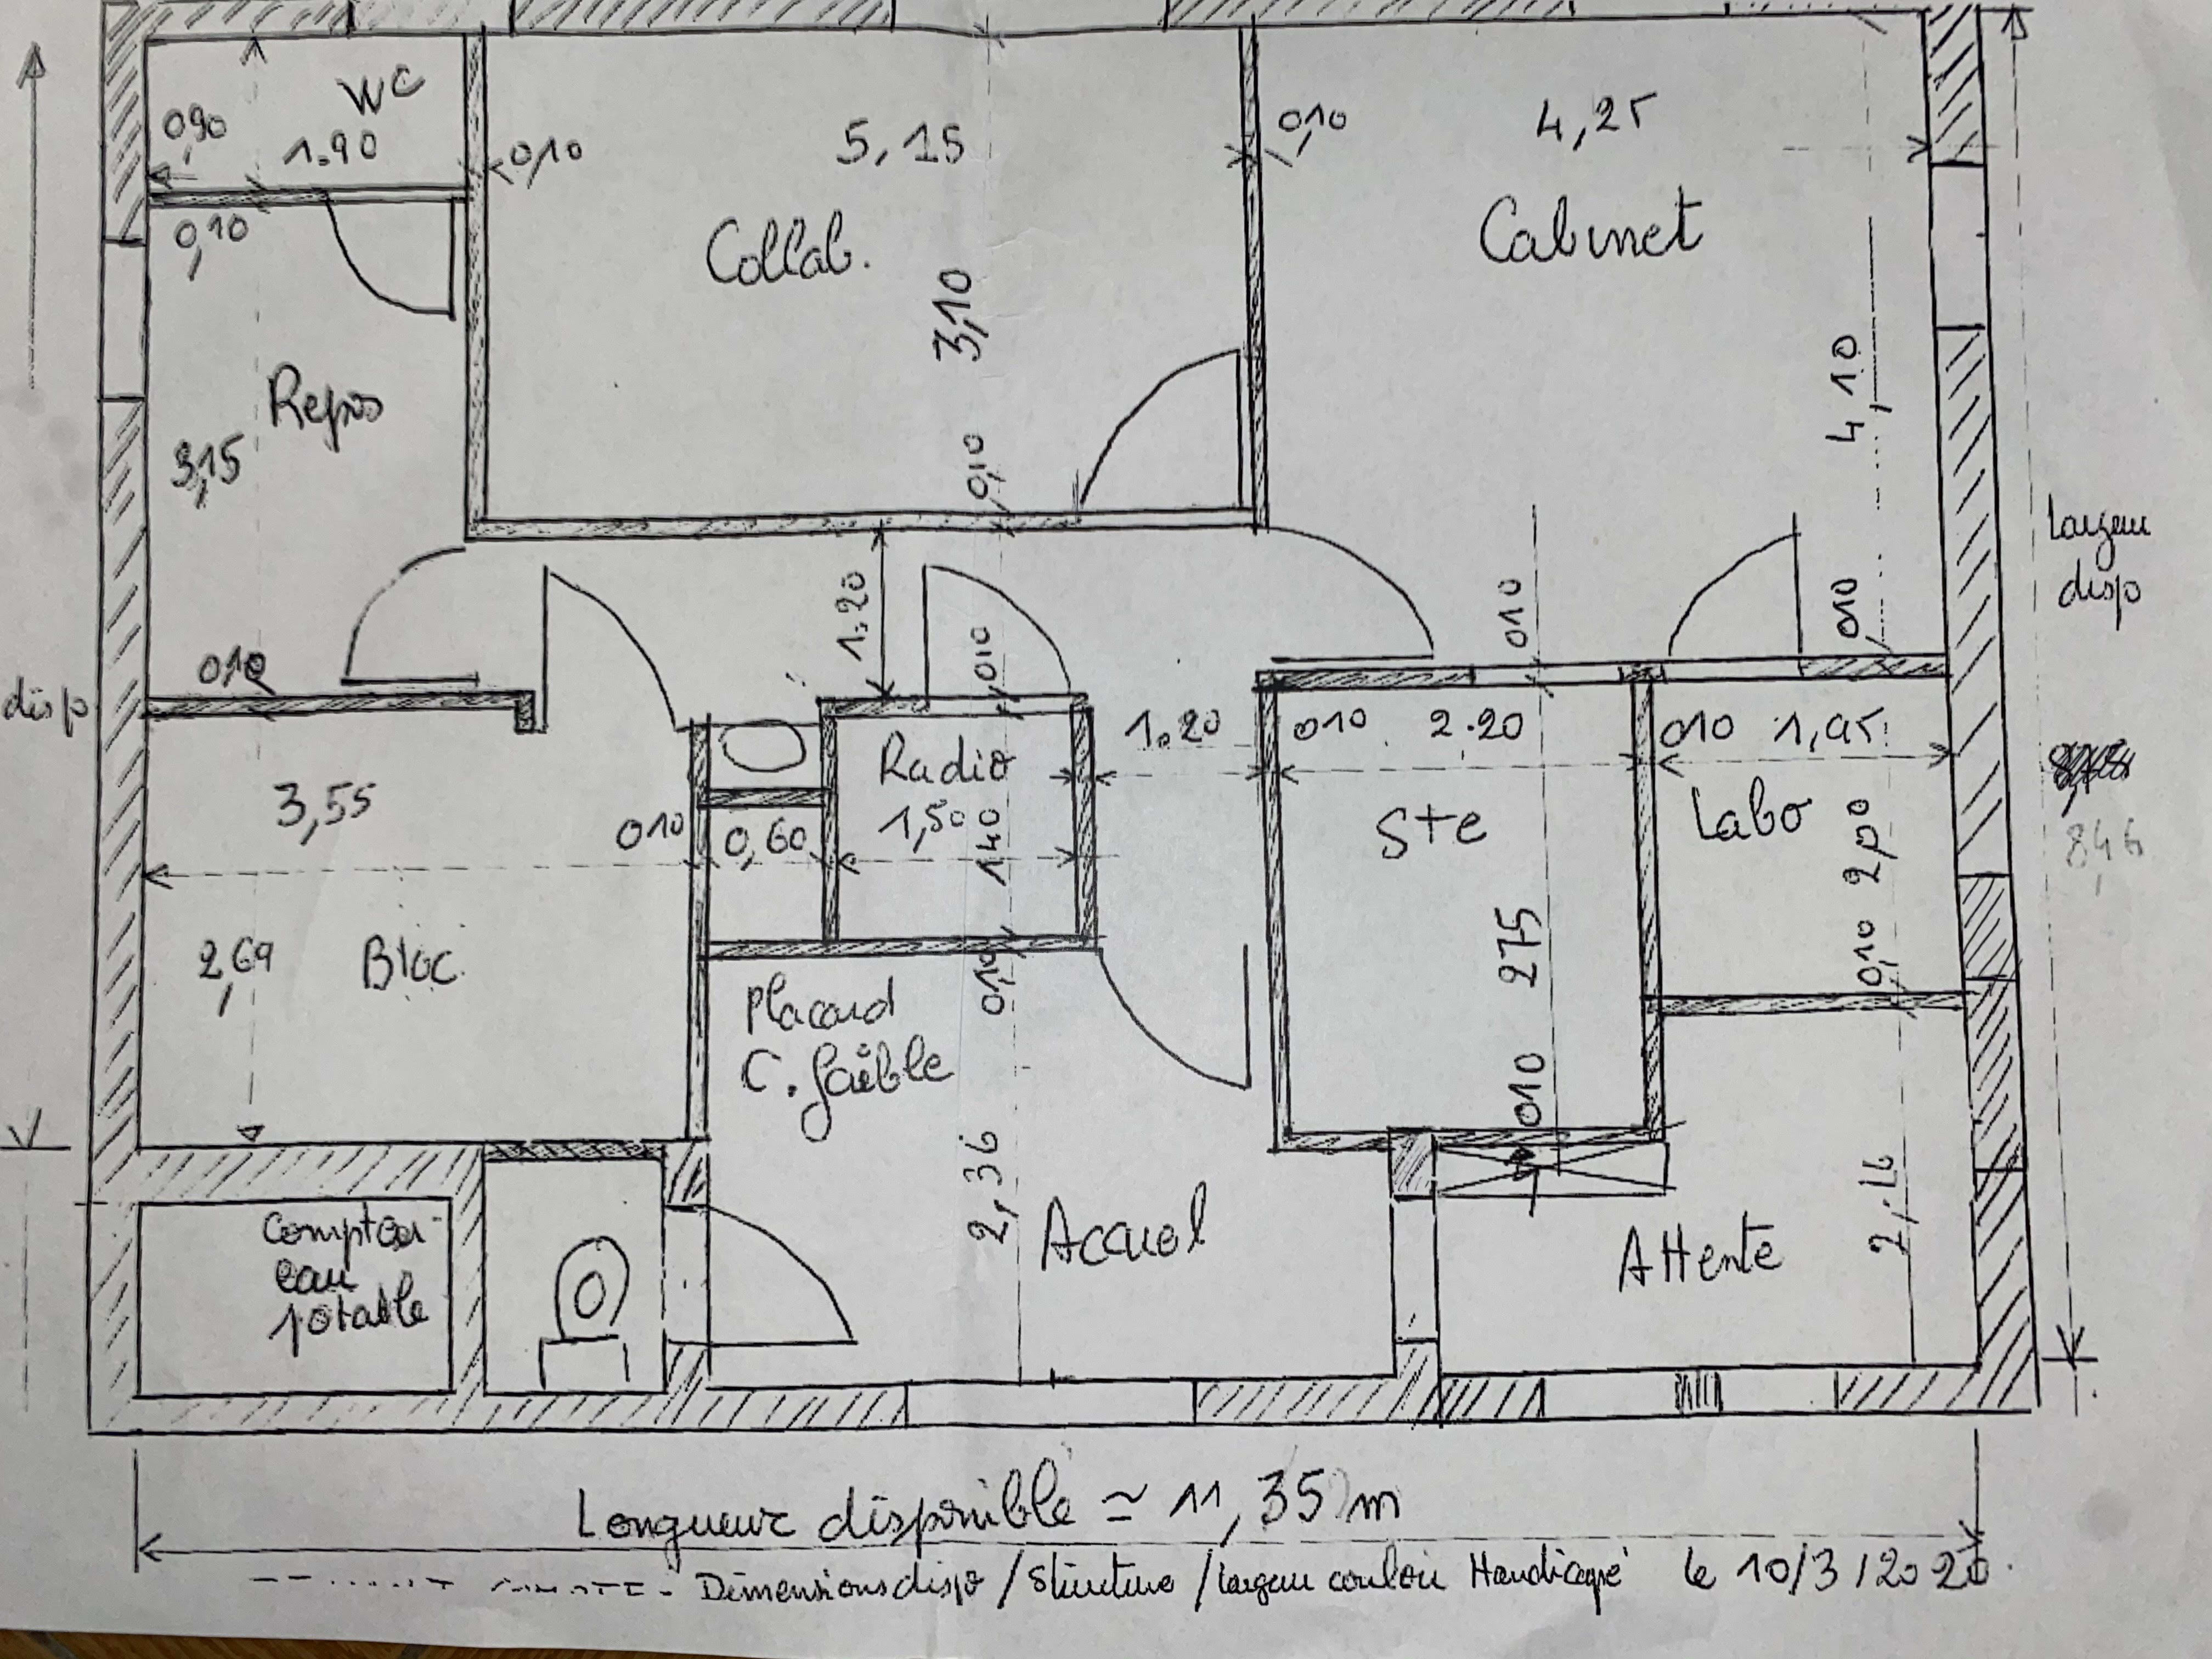 WC
0,90
1.90
0,10
5,15
0,10
4,25
0,10
Collab.
Cabinet
3,10
4,10
Repos
3,15
0,10
Largeur
disp
1.20
010
010
010
010
disp
Radio
1.20
010
2.20
010
3,55
010
0,60
1,50
1,40
Ste
Labo
8,46
2,69
Bloc.
Placard
C. faible
0,10
275
0,10
010
2,36
Accueil
Attente
Compteur
eau
potable
Longueur disponible ≃ 11,35 m
Dimensions dispo / Structure / largeur couloir Handicapé le 10/3/2020.